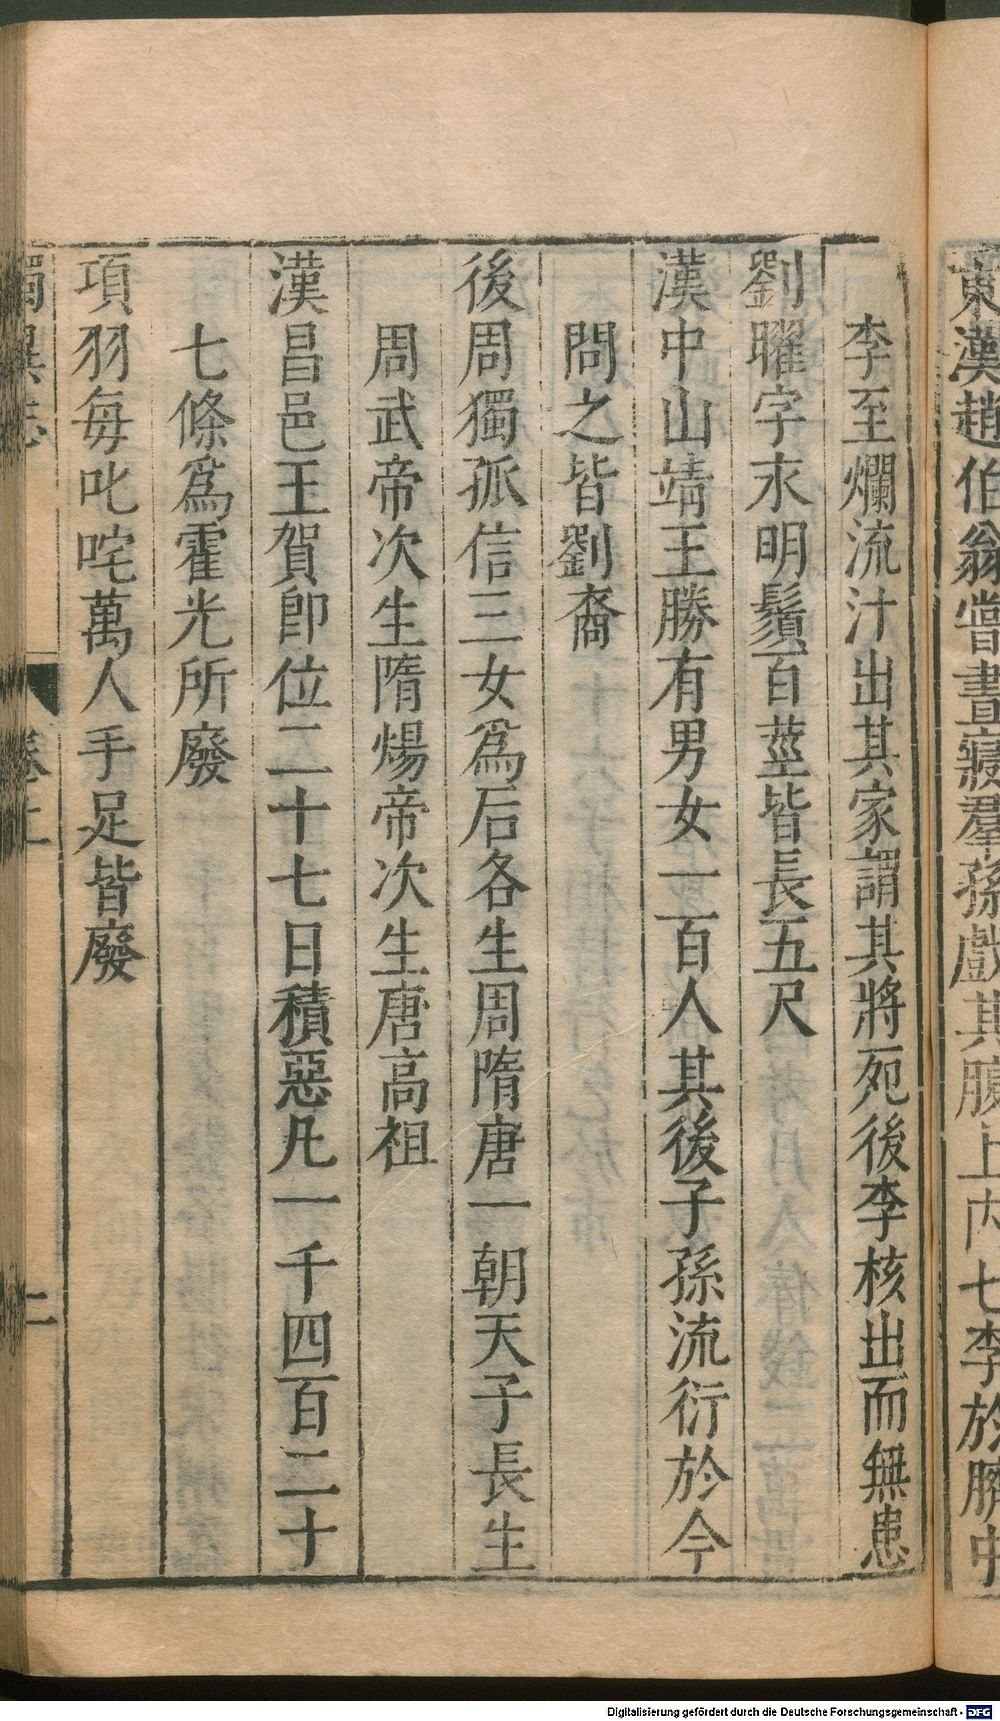 東漢趙伯翁嘗晝寢羣孫戲其腹上內七李於臍中
李至爛流汁出其家謂其將死後李核出而無患
劉曜字永明鬚百莖皆長五尺
漢中山靖王勝有男女一百人其後子孫流衍於今
問之皆劉裔
後周獨孤信三女爲后各生周隋唐一朝天子長生
周武帝次生隋煬帝次生唐高祖
漢昌邑王賀卽位二十七日積惡凡一千四百二十
七條爲霍光所廢
項羽每叱咤萬人手足皆廢
獨異志
卷上
二
Digitalisierung gefördert durch die Deutsche Forschungsgemeinschaft - DFG